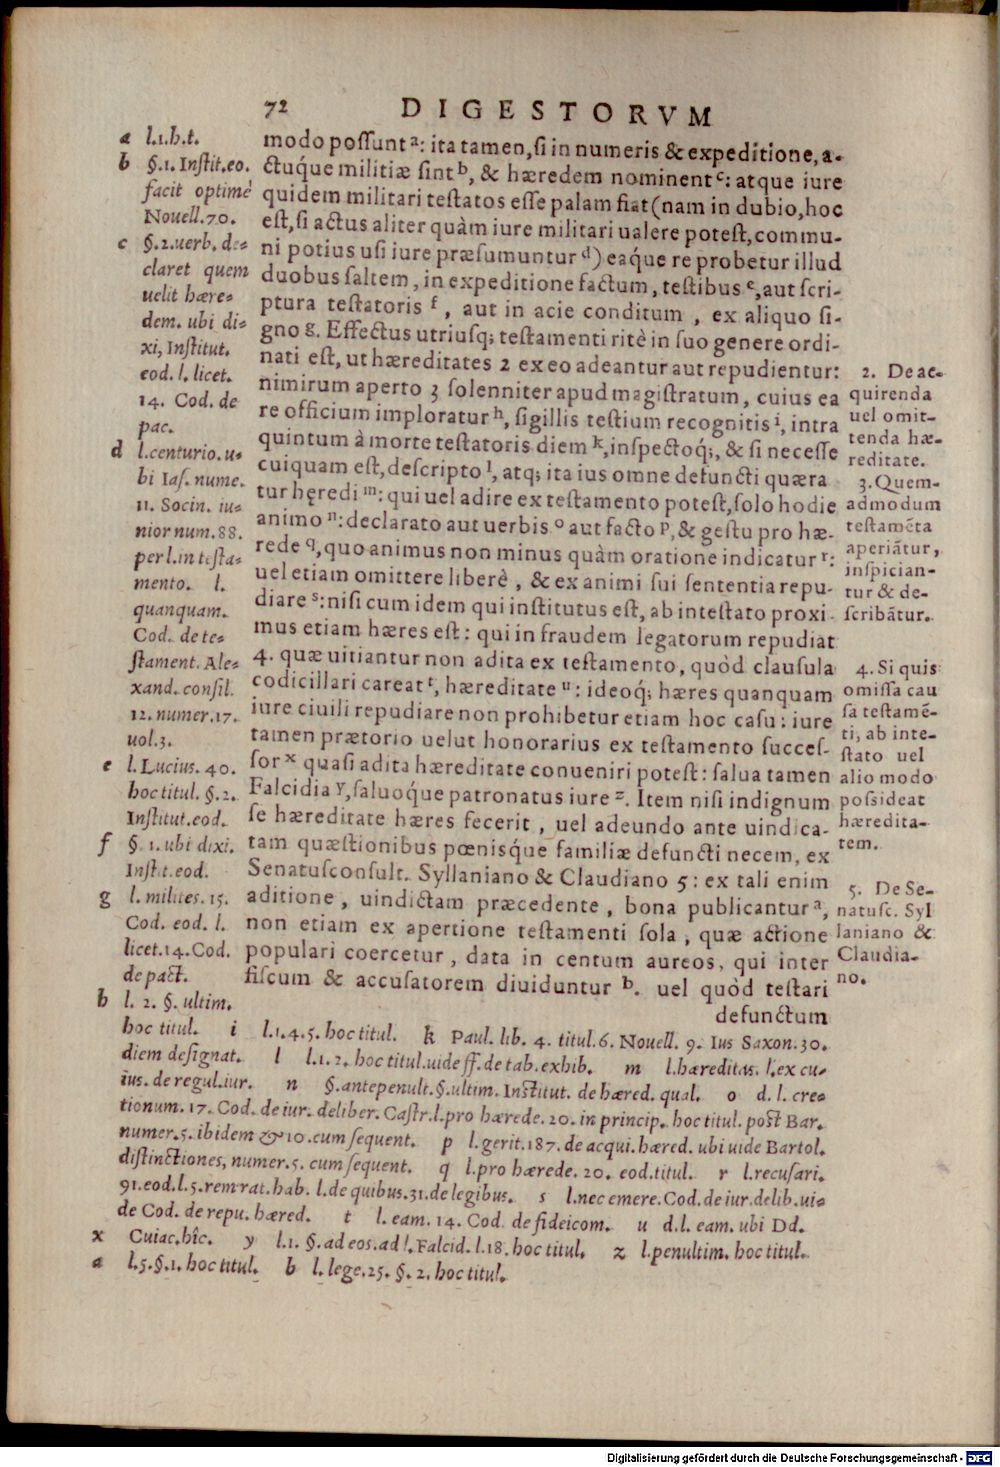 72 DIGESTORVM
modo possunt a: ita tamen, si in numeris & expeditione, a-
ctuq́ue militiæ sint b, & hæredem nominent c: atque iure
quidem militari testatos esse palam fiat (nam in dubio, hoc
est, si actus aliter quàm iure militari ualere potest, commu-
ni potius usi iure præsumuntur d) eaq́ue re probetur illud
duobus saltem, in expeditione factum, testibus e, aut scri-
ptura testatoris f, aut in acie conditum, ex aliquo si-
gno g. Effectus utriusq; testamenti ritè in suo genere ordi-
nati est, ut hæreditates 2 ex eo adeantur aut repudientur:
nimirum aperto 3 solenniter apud magistratum, cuius ea
re officium imploratur h, sigillis testium recognitis i, intra
quintum à morte testatoris diem k, inspectoq́;, & si necesse
cuiquam est, descripto l, atq; ita ius omne defuncti quæra
tur hęredi m: qui uel adire ex testamento potest, solo hodie
animo n: declarato aut uerbis o aut facto p, & gestu pro hæ-
rede q, quo animus non minus quàm oratione indicatur r:
uel etiam omittere liberè, & ex animi sui sententia repu-
diare s: nisi cum idem qui institutus est, ab intestato proxi
mus etiam hæres est: qui in fraudem legatorum repudiat
4. quæ uitiantur non adita ex testamento, quòd clausula
codicillari careat t, hæreditate u: ideoq́; hæres quanquam
iure ciuili repudiare non prohibetur etiam hoc casu: iure
tamen prætorio uelut honorarius ex testamento succes-
sor x quasi adita hæreditate conueniri potest: salua tamen
Falcidia y, saluoq́ue patronatus iure z. Item nisi indignum
se hæreditate hæres fecerit, uel adeundo ante uindica-
tam quæstionibus pœnisq́ue familiæ defuncti necem, ex
Senatusconsult. Syllaniano & Claudiano 5: ex tali enim
aditione, uindictam præcedente, bona publicantur a,
non etiam ex apertione testamenti sola, quæ actione
populari coercetur, data in centum aureos, qui inter
fiscum & accusatorem diuiduntur b. uel quòd testari
defunctum
a l.1.h.t.
b §.1. Instit.eo.
facit optimè
Nouell.70.
c §.2.uerb. de-
claret quem
uelit hære-
dem. ubi di-
xi, Institut.
eod. l. licet.
14. Cod. de
pac.
d l.centurio. u-
bi Ias. nume.
11. Socin. iu-
nior num.88.
per l.in testa-
mento. l.
quanquam.
Cod. de te-
stament. Ale-
xand. consil.
12. numer.17.
uol.3.
e l.Lucius. 40.
hoc titul. §.2.
Institut.eod.
f §.1. ubi dixi.
Instit.eod.
g l. milites. 15.
Cod. eod. l.
licet.14.Cod.
de pact.
h l. 2. §. ultim.
2. De ac-
quirenda
uel omit-
tenda hæ-
reditate.
3. Quem-
admodum
testamẽta
aperiãtur,
inspician-
tur & de-
scribãtur.
4. Si quis
omissa cau
sa testamẽ-
ti, ab inte-
stato uel
alio modo
possideat
hæredita-
tem.
5. De Se-
natusc. Syl
laniano &
Claudia-
no.
hoc titul. i l.1.4.5. hoc titul. k Paul. lib. 4. titul.6. Nouell. 9. Ius Saxon.30.
diem designat. l l.1.2. hoc titul.uide ff. de tab.exhib. m l.hæreditas. l.ex cu-
ius. de regul.iur. n §.antepenult.§.ultim. Institut. de hæred. qual. o d. l. cre-
tionum. 17. Cod. de iur. deliber. Castr.l.pro hærede. 20. in princip. hoc titul. post Bar.
numer.5. ibidem & 10.cum sequent. p l.gerit.187.de acqui.hæred. ubi uide Bartol.
distinctiones, numer.5. cum sequent. q l.pro hærede. 20. eod.titul. r l.recusari.
91.eod.l.5.rem rat. hab. l.de quibus.31.de legibus. s l.nec emere.Cod.de iur.delib.ui-
de Cod. de repu. hæred. t l. eam. 14. Cod. de fideicom. u d.l. eam. ubi Dd.
x Cuiac.hîc. y l.1. §.ad eos.ad l.Falcid.l.18.hoc titul. z l.penultim. hoc titul.
a l.5.§.1. hoc titul. b l. lege.25. §. 2. hoc titul.
Digitalisierung gefördert durch die Deutsche Forschungsgemeinschaft - DFG